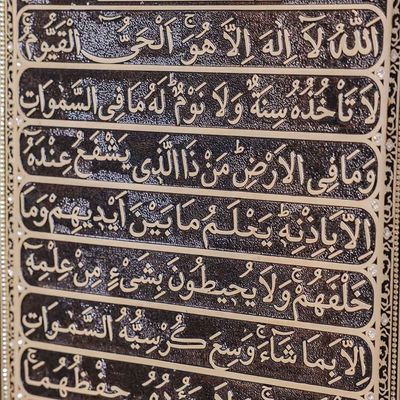 اَللّٰهُ لَآ اِلٰهَ اِلَّا هُوَۚ اَلْحَيُّ الْقَيُّومُ
لَا تَأْخُذُهُ سِنَةٌ وَلَا نَوْمٌؕ لَهُ مَا فِي السَّمٰوَاتِ
وَمَا فِي الْاَرْضِؕ مَنْ ذَا الَّذِي يَشْفَعُ عِنْدَهُٓ
اِلَّا بِاِذْنِهٖؕ يَعْلَمُ مَا بَيْنَ اَيْدِيهِمْ وَمَا
خَلْفَهُمْۚ وَلَا يُحِيطُونَ بِشَيْءٍ مِنْ عِلْمِهٖٓ
اِلَّا بِمَا شَآءَۚ وَسِعَ كُرْسِيُّهُ السَّمٰوَاتِ
حِفْظُهُمَاۚ